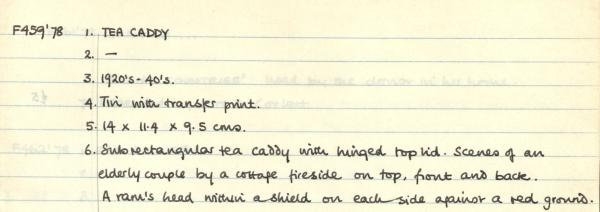 F459'78 1. TEA CADDY
2. —
3. 1920's - 40's.
4. Tin with transfer print.
5. 14 x 11.4 x 9.5 cms.
6. Subrectangular tea caddy with hinged top lid. Scenes of an
elderly couple by a cottage fireside on top, front and back.
A ram's head within a shield on each side against a red ground.